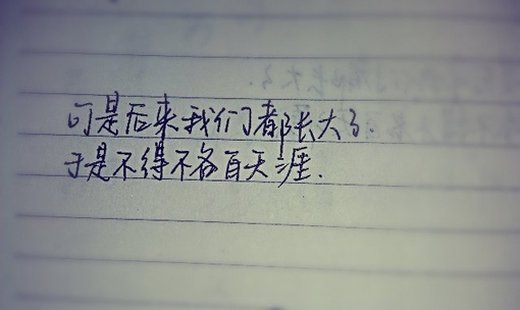 可是后来我们都长大了.
于是不得不各自天涯.